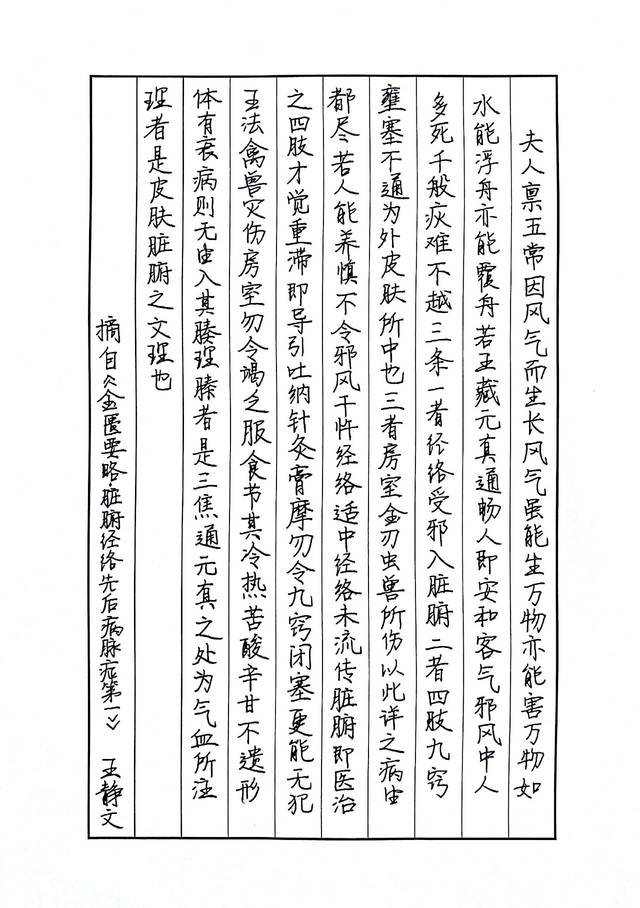 夫人禀五常因风气而生长风气虽能生万物亦能害万物如
水能浮舟亦能覆舟若五藏元真通畅人即安和客气邪风中人
多死千般疢难不越三条一者经络受邪入脏腑二者四肢九窍
壅塞不通为外皮肤所中也三者房室金刃虫兽所伤以此详之病由
都尽若人能养慎不令邪风干忤经络适中经络未流传脏腑即医治
之四肢才觉重滞即导引吐纳针灸膏摩勿令九窍闭塞更能无犯
王法禽兽灾伤房室勿令竭乏服食节其冷热苦酸辛甘不遗形
体有衰病则无由入其腠理腠者是三焦通元真之处为气血所注
理者是皮肤脏腑之文理也
摘自《金匮要略·脏腑经络先后病脉症第一》 王静文